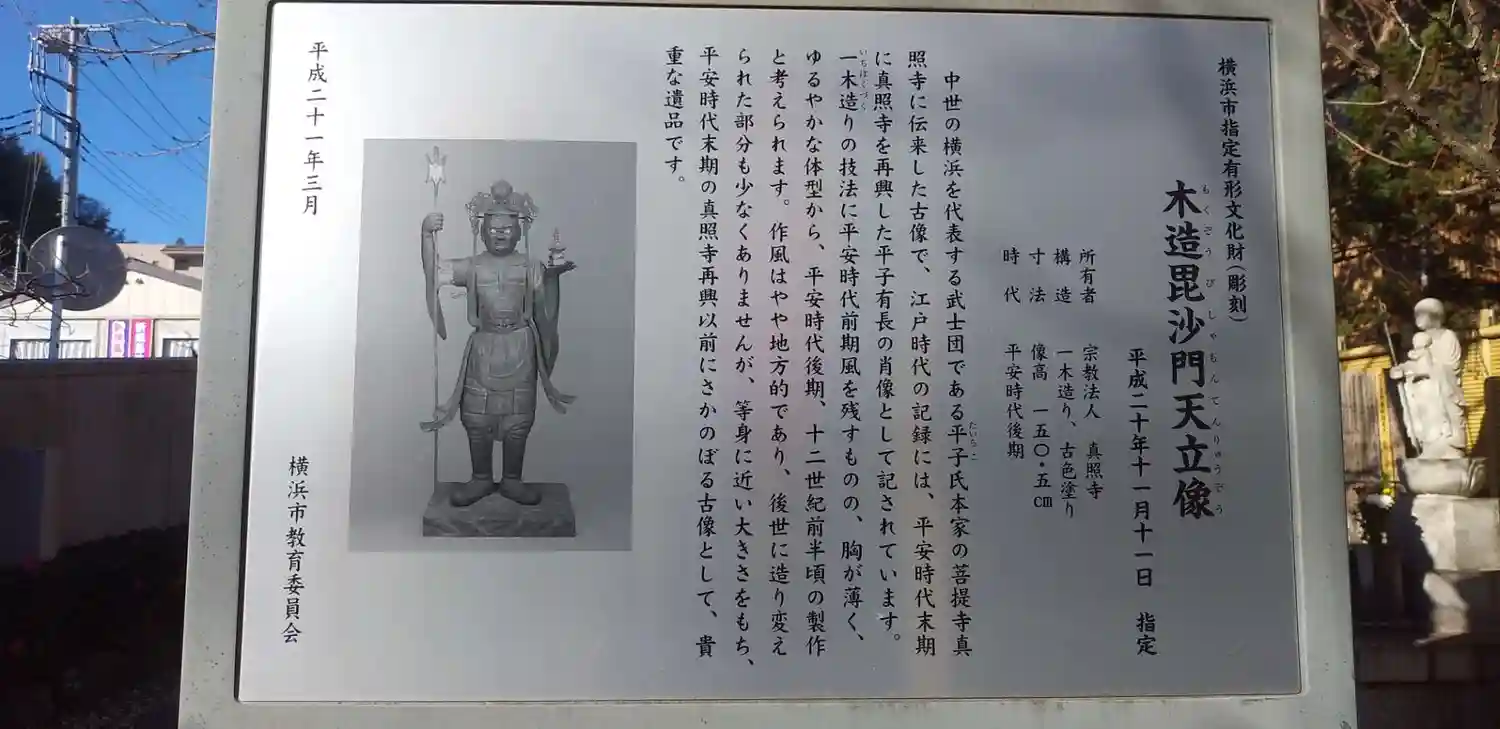 横浜市指定有形文化財(彫刻)
もくぞうびしゃもんてんりゅうぞう
木造毘沙門天立像
平成二十年十一月十一日 指定
所有者 宗教法人 真照寺
構造 一木造り、古色塗り
寸法 像高 一五〇・五cm
時代 平安時代後期
たいらこ
中世の横浜を代表する武士団である平子氏本家の菩提寺真
照寺に伝来した古像で、江戸時代の記録には、平安時代末期
に真照寺を再興した平子有長の肖像として記されています。
いちぼくづく
一木造りの技法に平安時代前期風を残すものの、胸が薄く、
ゆるやかな体型から、平安時代後期、十二世紀前半頃の製作
と考えられます。作風はやや地方的であり、後世に造り変え
られた部分も少なくありませんが、等身に近い大きさをもち、
平安時代末期の真照寺再興以前にさかのぼる古像として、貴
重な遺品です。
平成二十一年三月
横浜市教育委員会